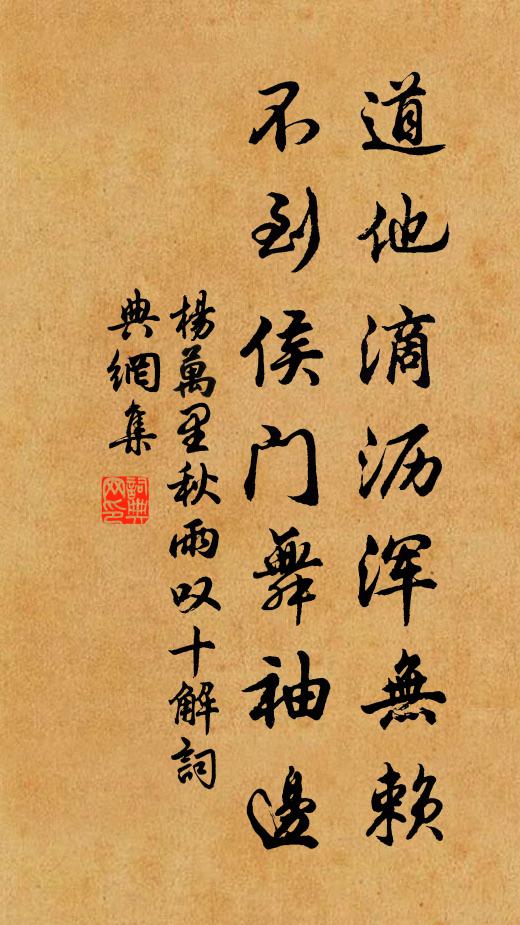 道他滴沥浑無赖
不到侯门舞袖邊
楊萬里秋雨叹十解詞
典網集
詞典
网印